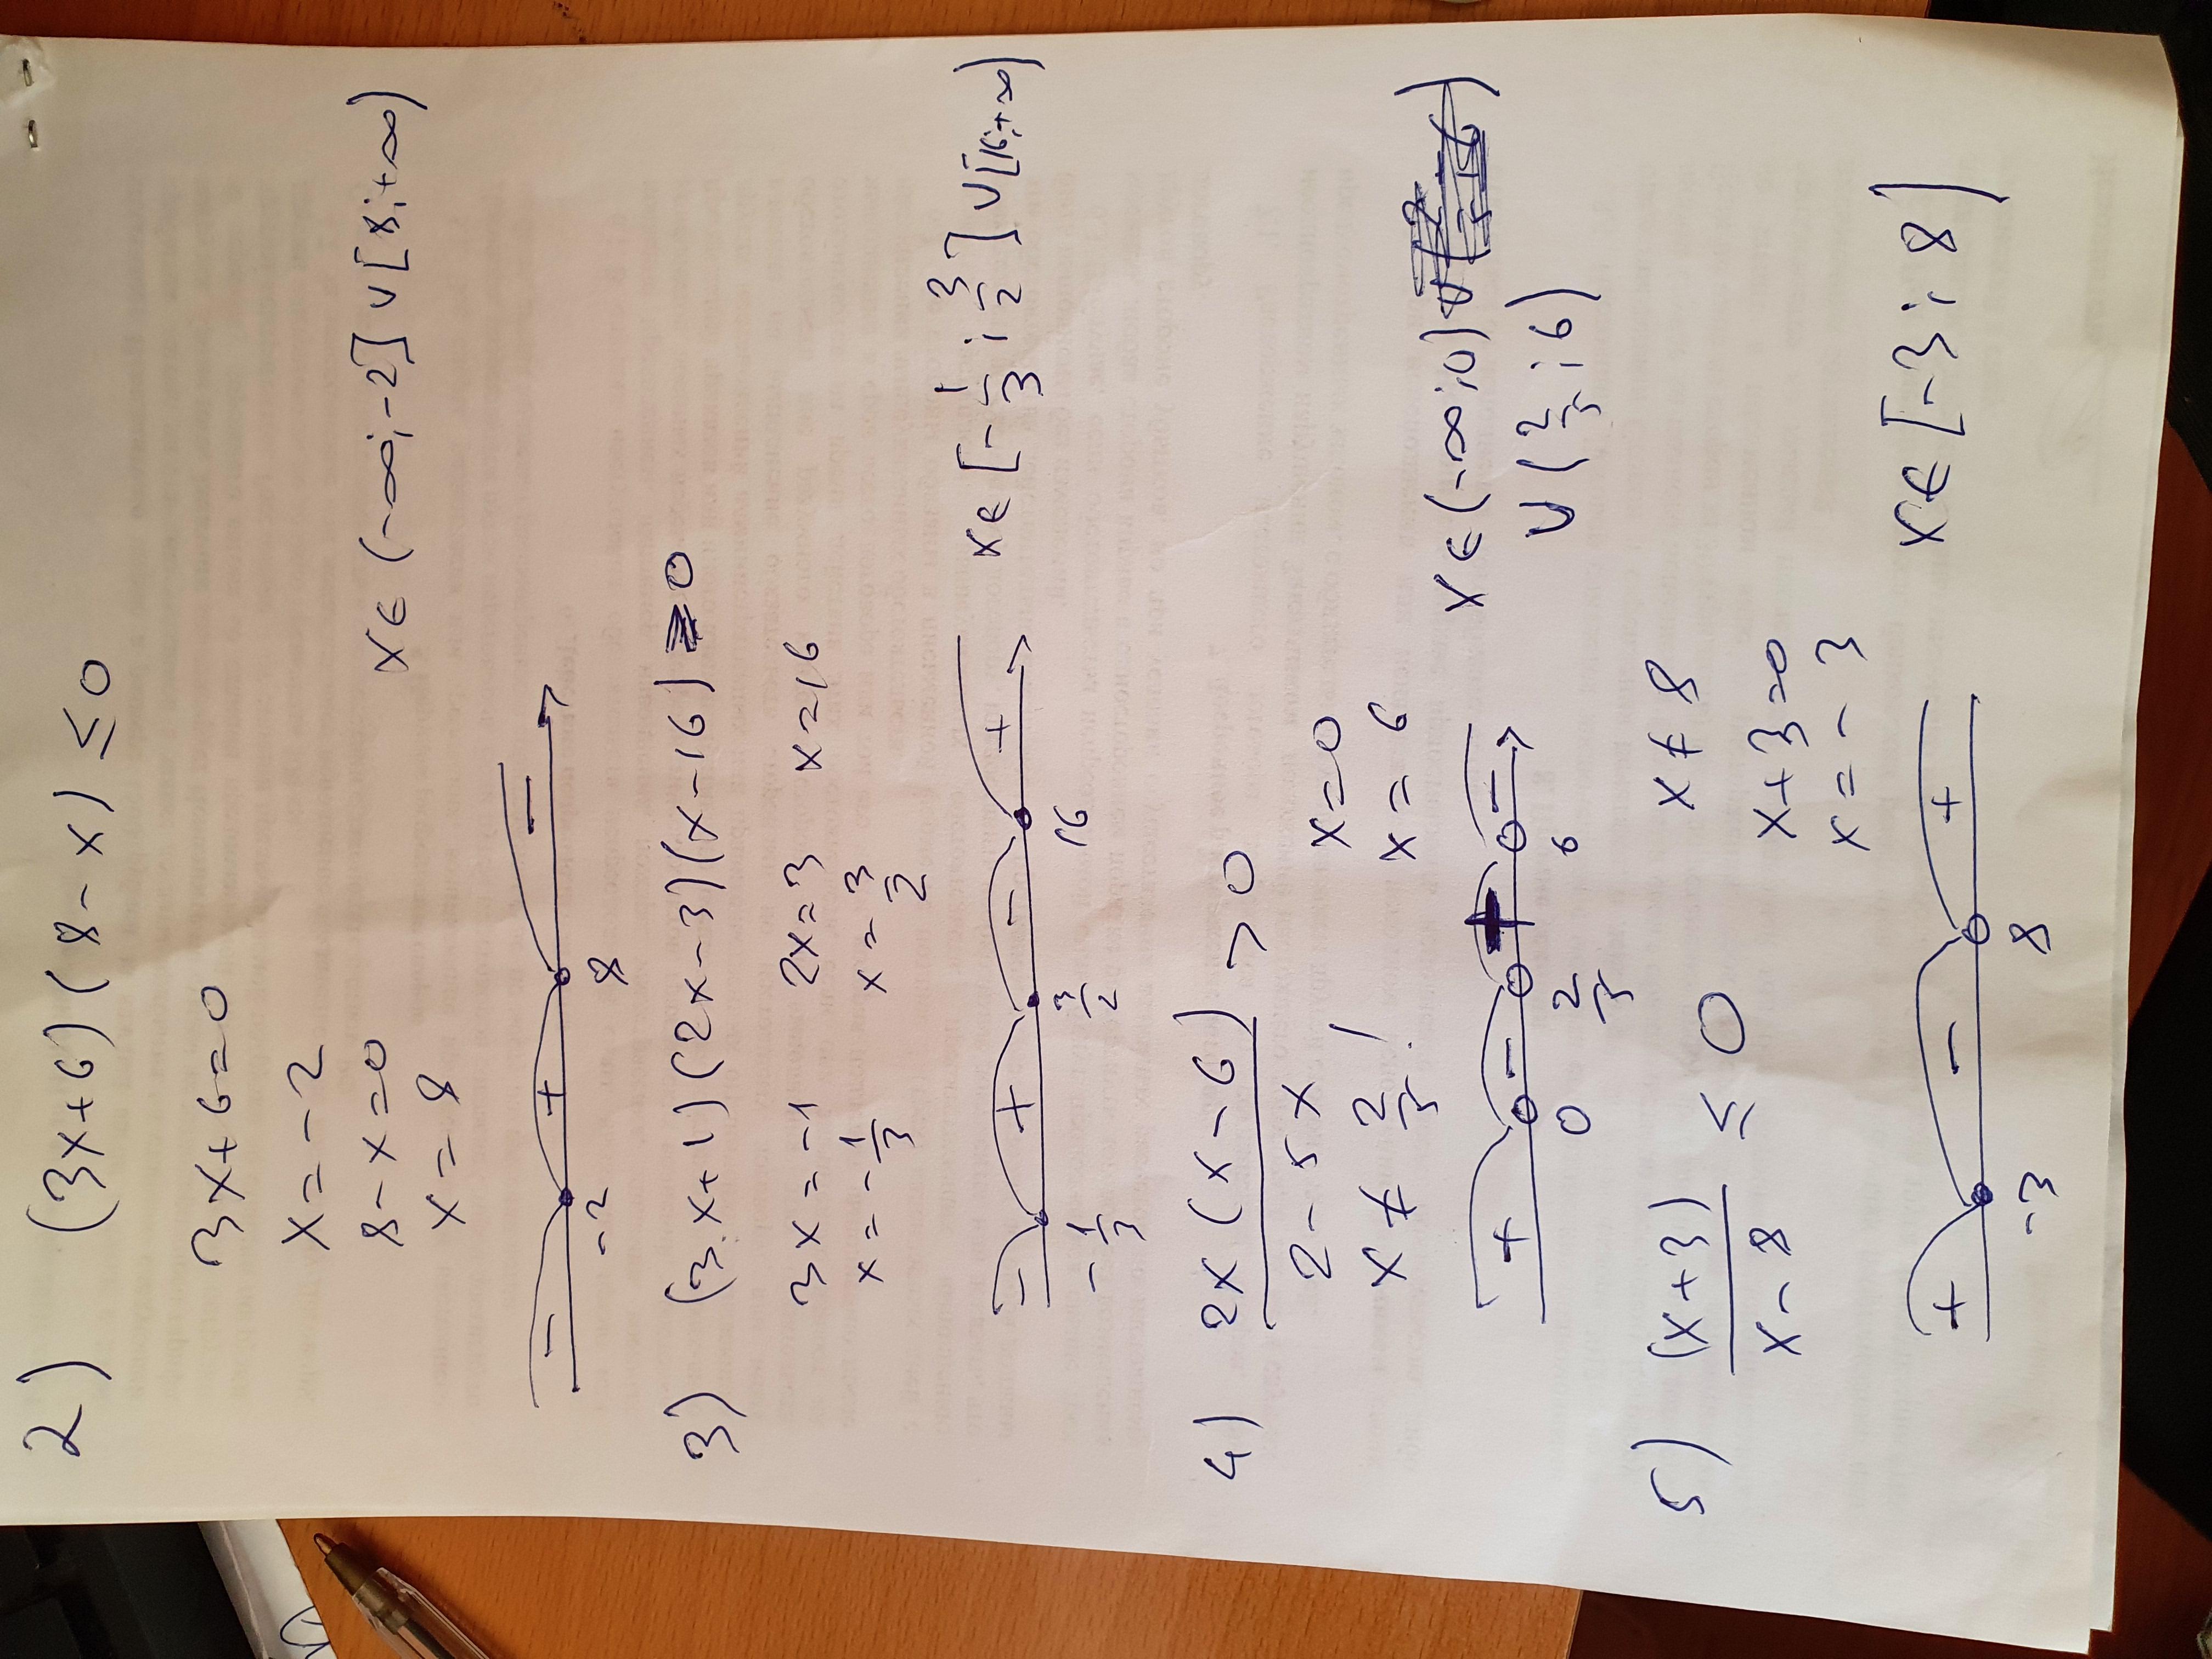 2) (3x+6)(8-x) ≤ 0
3x+6=0
x=-2
8-x=0
x=8
x∈(-∞;-2]∪[8;+∞)
- + -
-2 8
3) (3x+1)(2x-3)(x-16) ≥ 0
3x=-1 2x=3 x=16
x=-1/3 x=3/2
- + - +
-1/3 3/2 16
x∈[-1/3;3/2]∪[16;+∞)
4) 2x(x-6)/2-5x > 0
x≠2/5! x=0
x=6
+ - + -
0 2/5 6
x∈(-∞;0)
∪(2/5;6)
5) (x+3)/x-8 ≤ 0 x≠8
x+3=0
x=-3
+ - +
-3 8
x∈[-3;8)